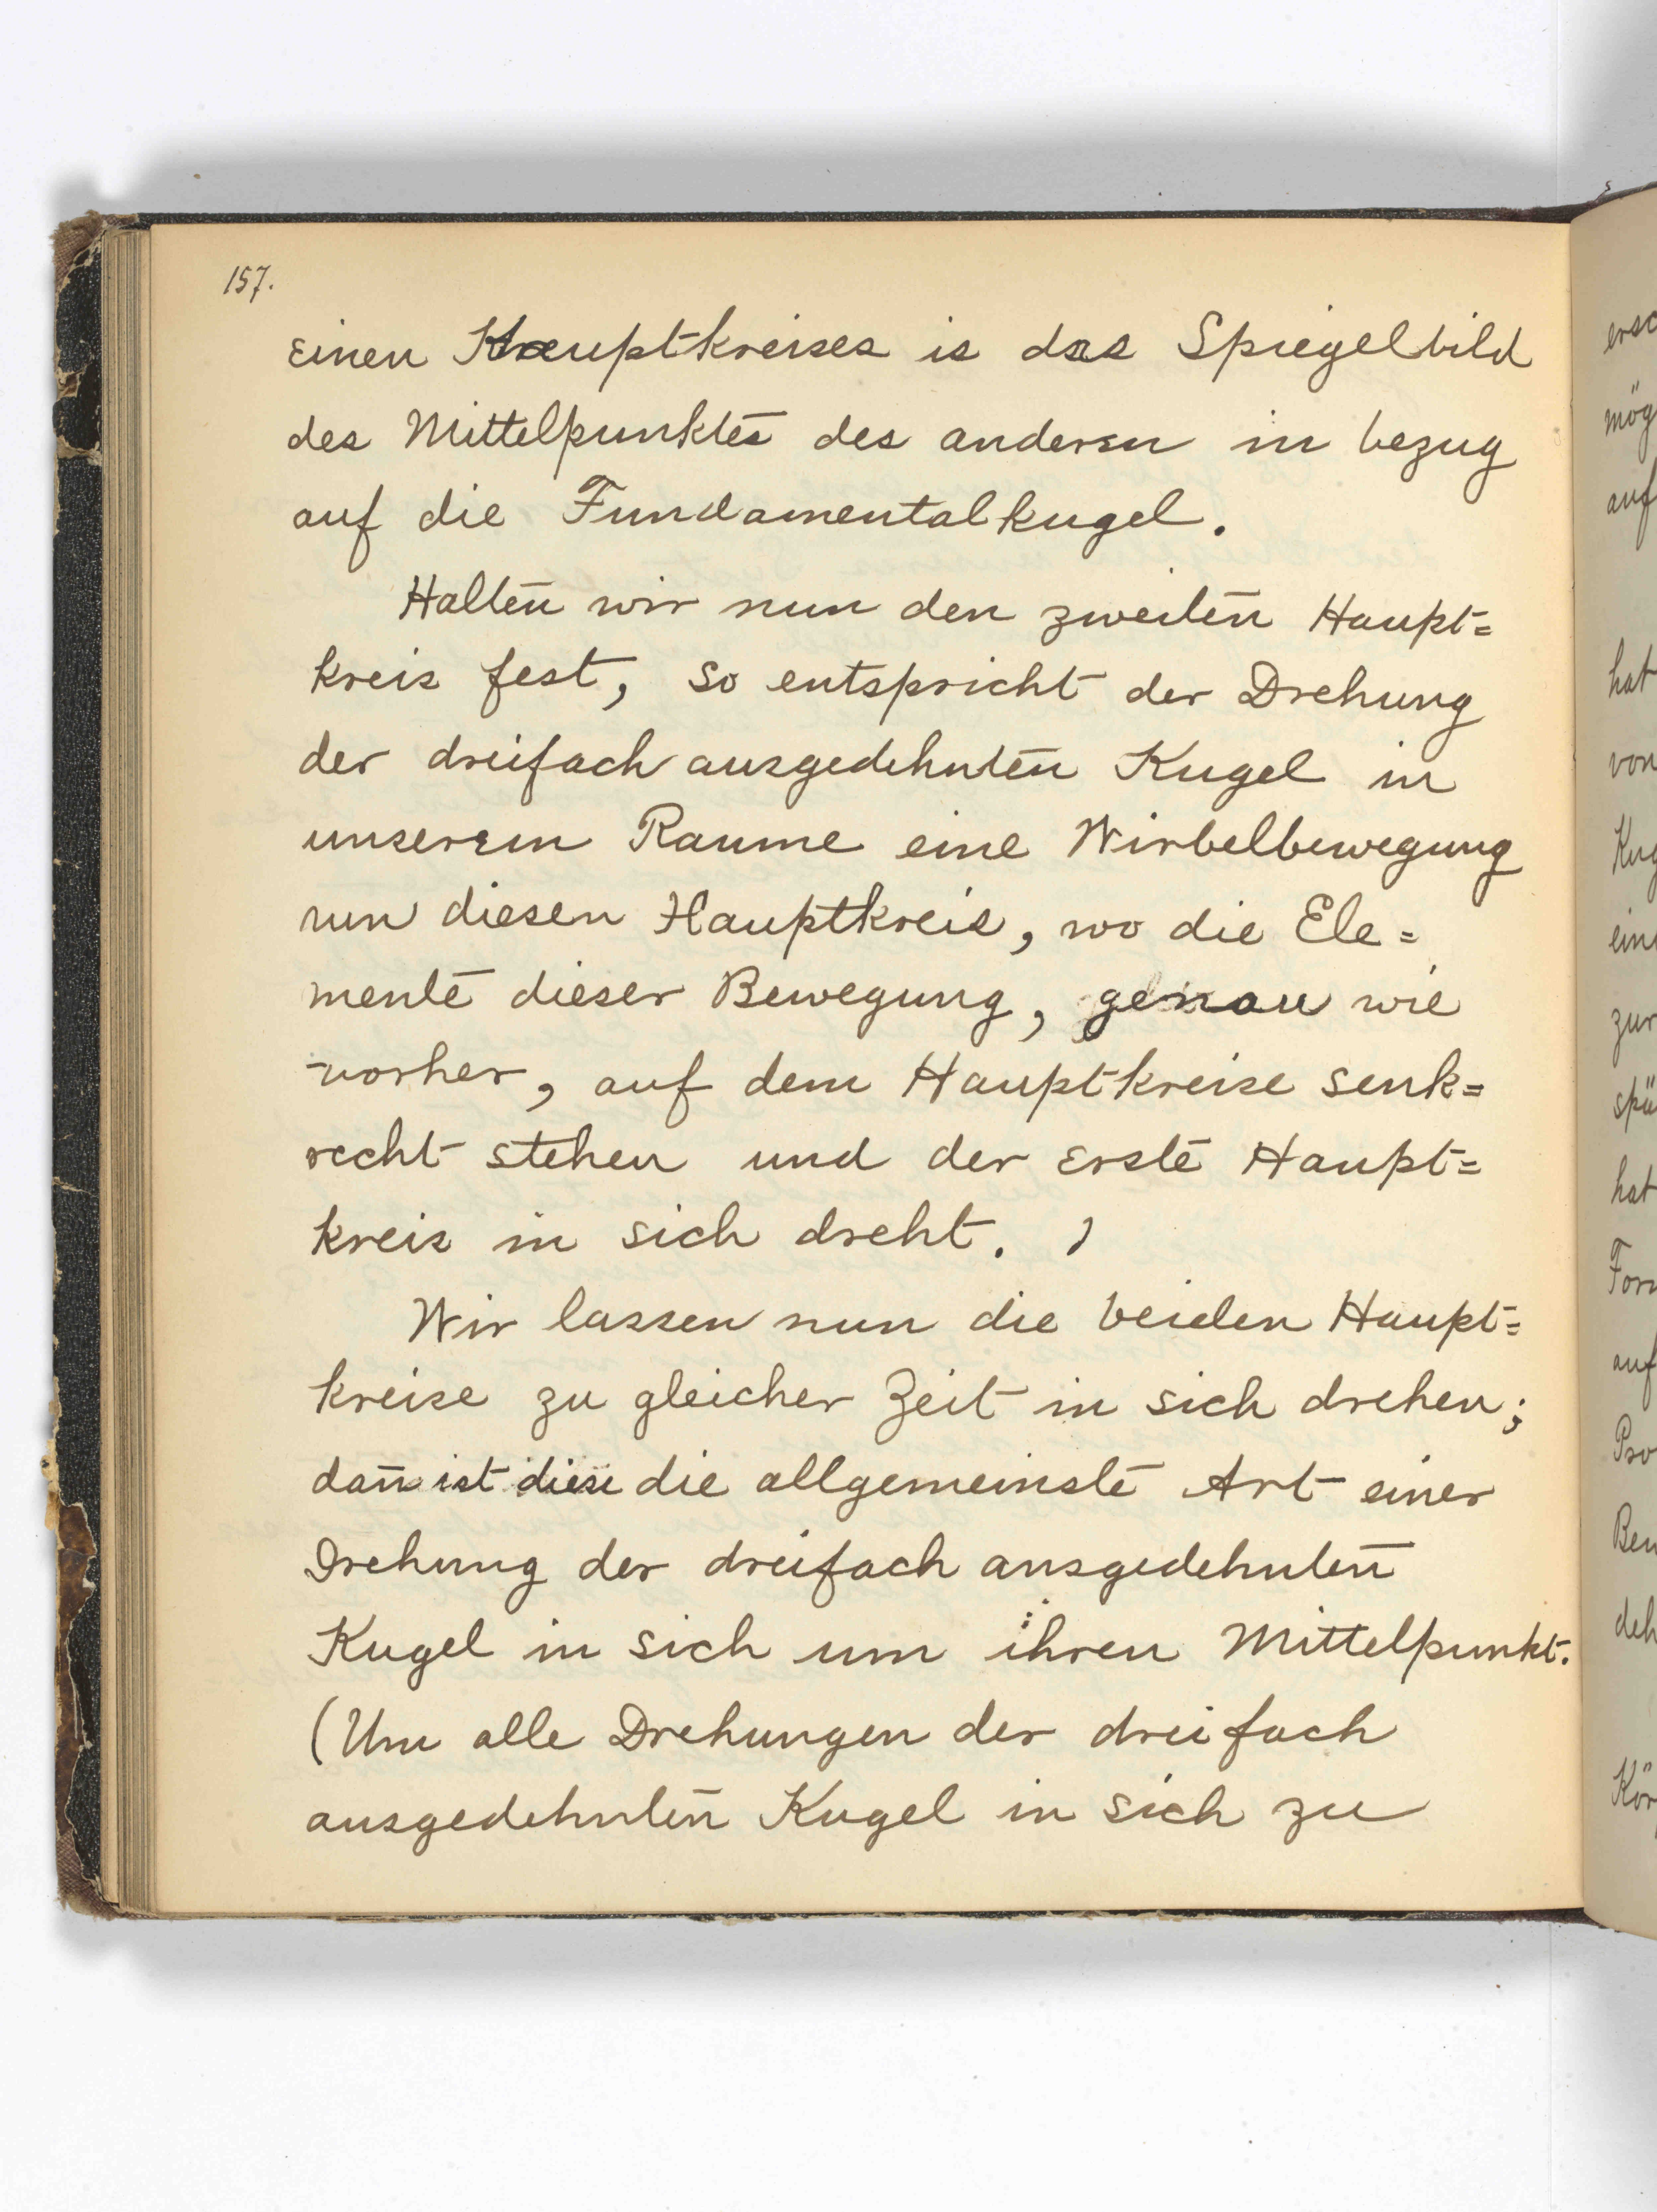 157.
einen Hauptkreises is das Spiegelbild
des Mittelpunktes des anderen in bezug
auf die Fundamentalkugel.
Halten wir nun den zweiten Haupt=
kreis fest, so entspricht der Drehung
der dreifach ausgedehnten Kugel in
unserem Raume eine Wirbelbewegung
um diesen Hauptkreis, wo die Ele=
mente dieser Bewegung, genau wie
vorher, auf dem Hauptkreise senk=
recht stehen und der erste Haupt=
kreis in sich dreht. )
Wir lassen nun die beiden Haupt=
kreise zu gleicher Zeit in sich drehen;
dan̄ ist diese die allgemeinste Art einer
Drehung der dreifach ausgedehnten
Kugel in sich um ihren Mittelpunkt.
(Um alle Drehungen der dreifach
ausgedehnten Kugel in sich zu
mög
auf
hat
von
Kug
zur
hat
auf